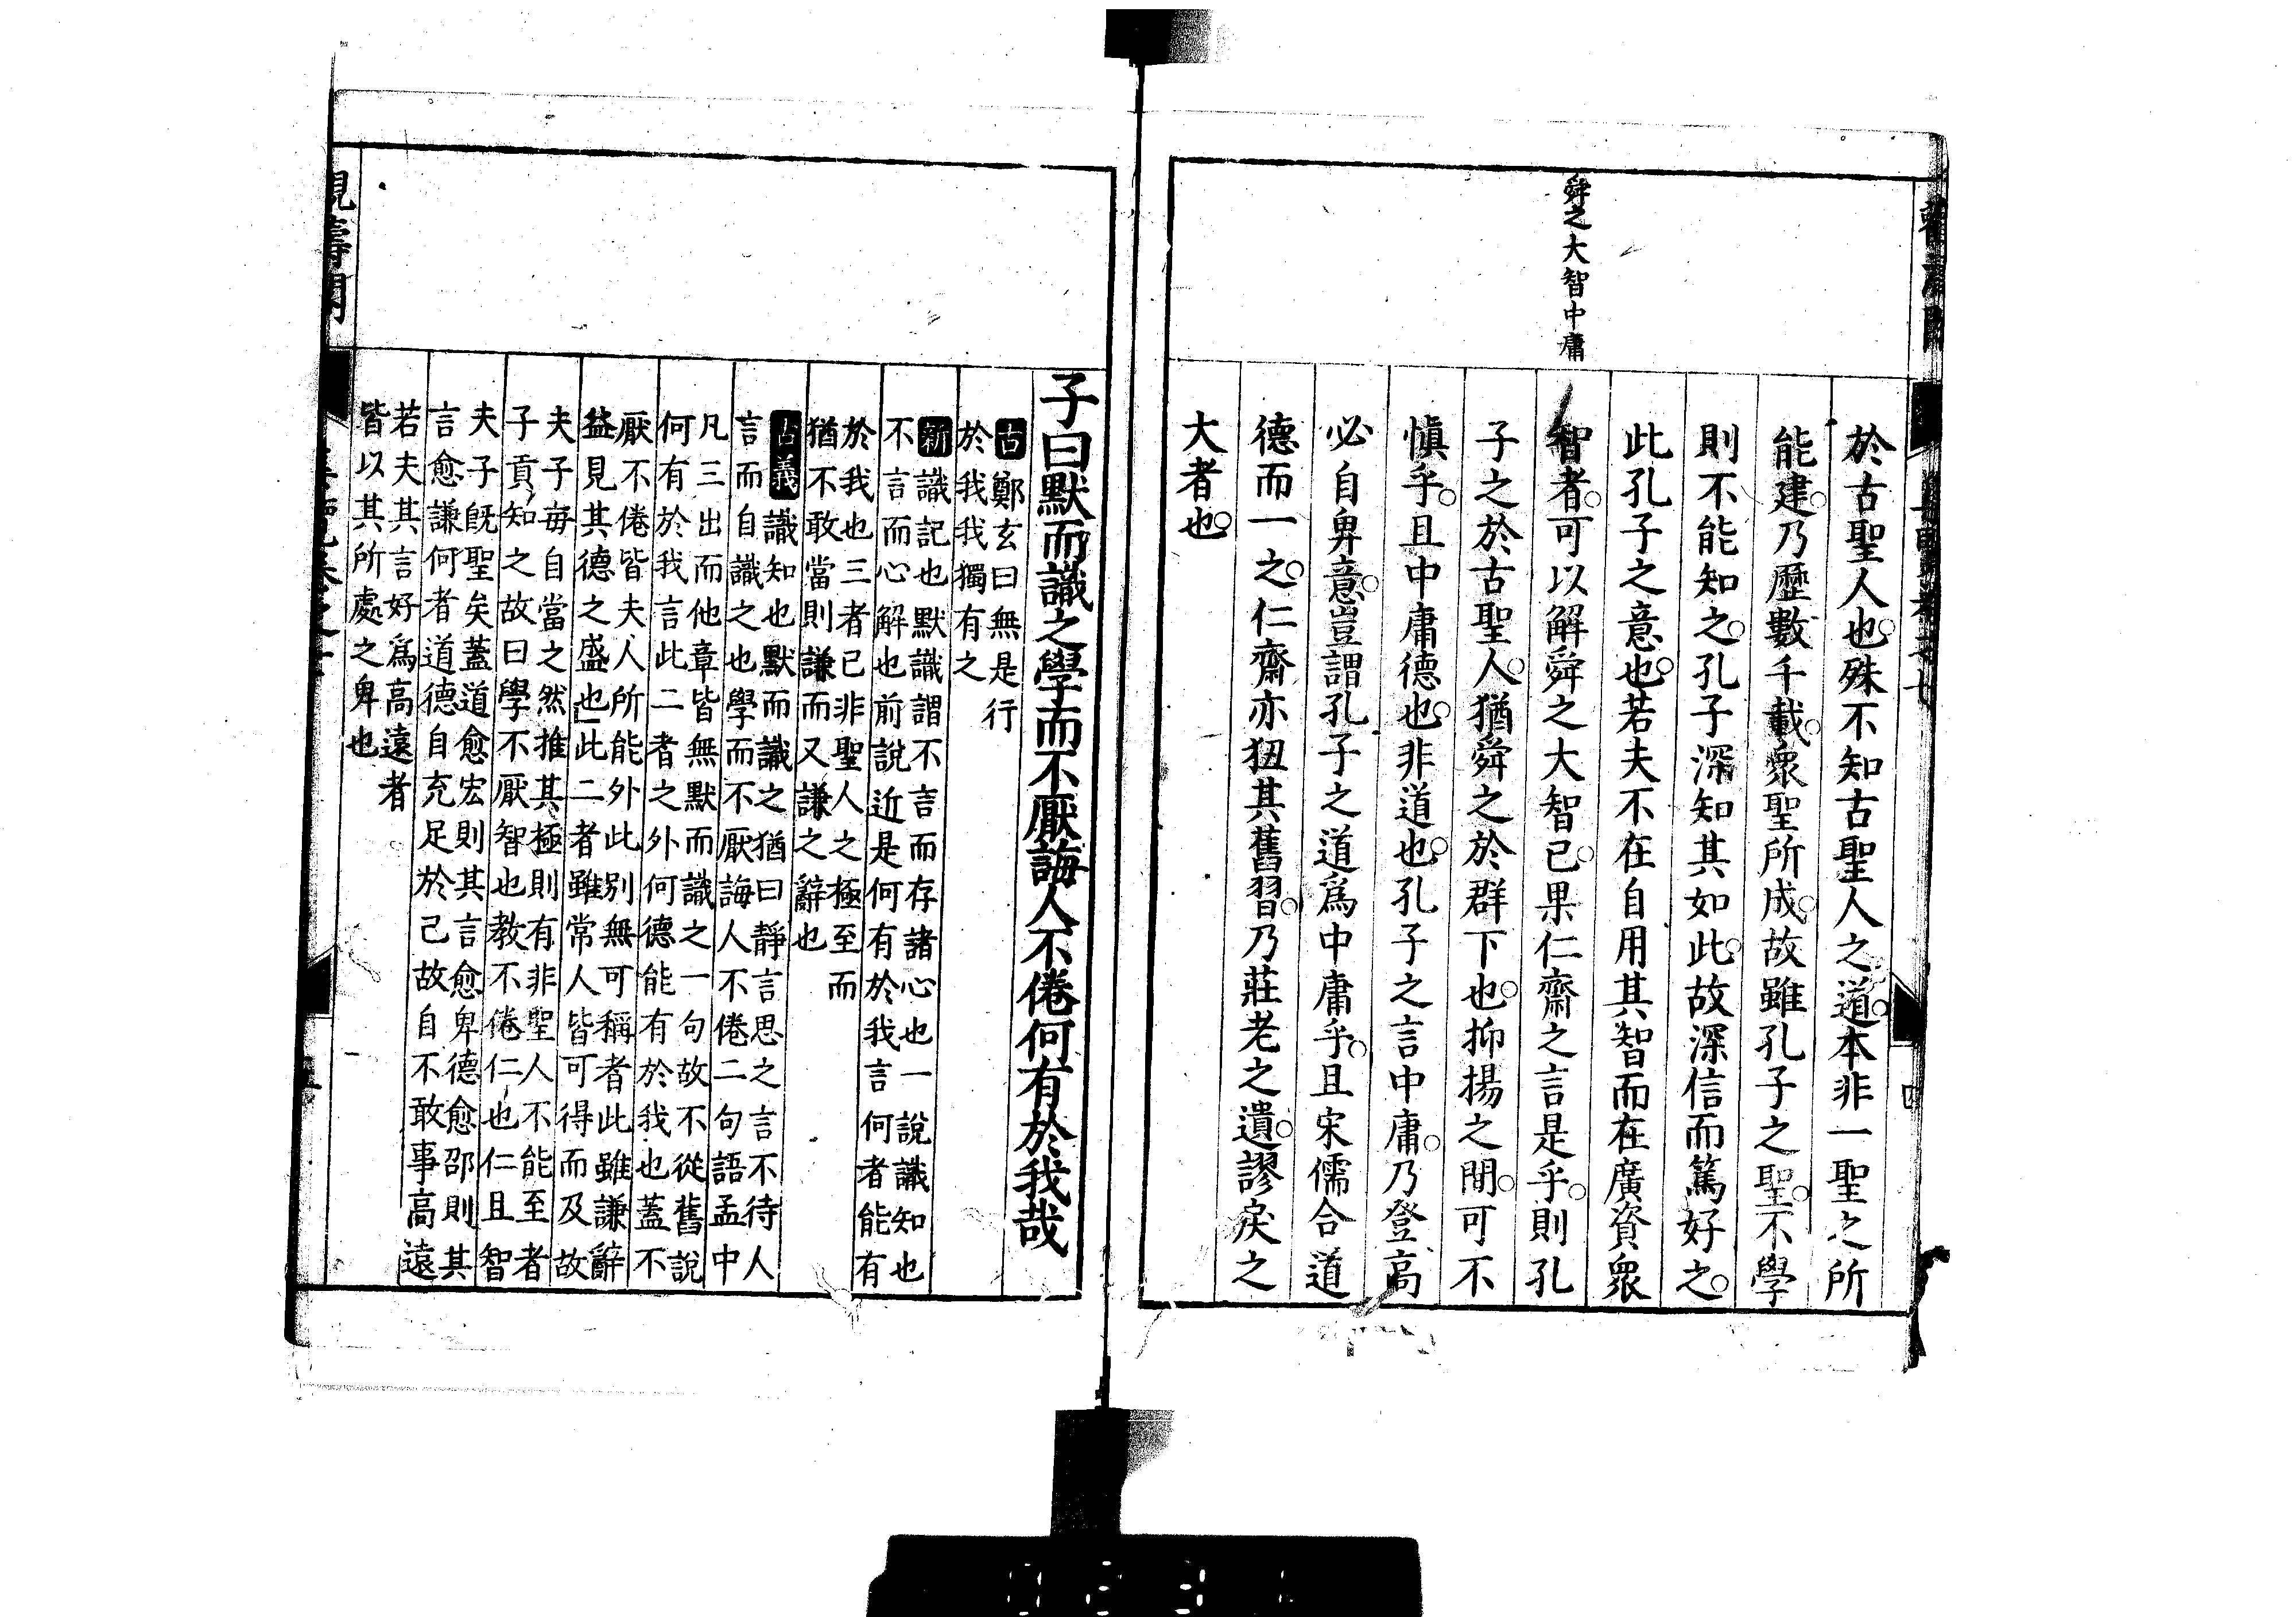 舜之大智中庸
於古聖人也殊不知古聖人之道本非一聖之所
能建乃歷數千載衆聖所成故雖孔子之聖不學
則不能知之孔子深知其如此故深信而篤好之
此孔子之意也若夫不在自用其智而在廣資衆
智者可以解舜之大智已果仁齋之言是乎則孔
子之於古聖人猶舜之於群下也抑揚之間可不
愼乎且中庸德也非道也孔子之言中庸乃登高
必自卑意豈謂孔子之道爲中庸乎且宋儒合道
德而一之仁齋亦狃其舊習乃莊老之遺謬戾之
大者也
四
子曰默而識之學而不厭誨人不倦何有於我哉
古鄭玄曰無是行
於我我獨有之
新識記也默識謂不言而存諸心也一說識知也
不言而心解也前說近是何有於我言何者能有
於我也三者已非聖人之極至而
猶不敢當則謙而又謙之辭也
古義識知也默而識之猶曰靜言思之言不待人
言而自識之也學而不厭誨人不倦二句語孟中
凡三出而他章皆無默而識之一句故不從舊說
何有於我言此二者之外何德能有於我也蓋不
厭不倦皆夫人所能外此別無可稱者此雖謙辭
益見其德之盛也此二者雖常人皆可得而及故
夫子每自當之然推其極則有非聖人不能至者
子貢知之故曰學不厭智也教不倦仁也仁且智
夫子既聖矣蓋道愈宏則其言愈卑德愈邵則其
言愈謙何者道德自充足於己故自不敢事高遠
若夫其言好爲高遠者
皆以其所處之卑也